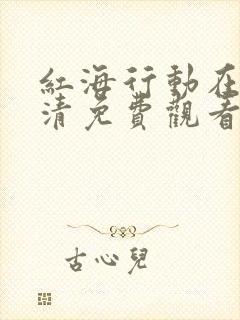 紅海行動在
清免費觀看
古心兒